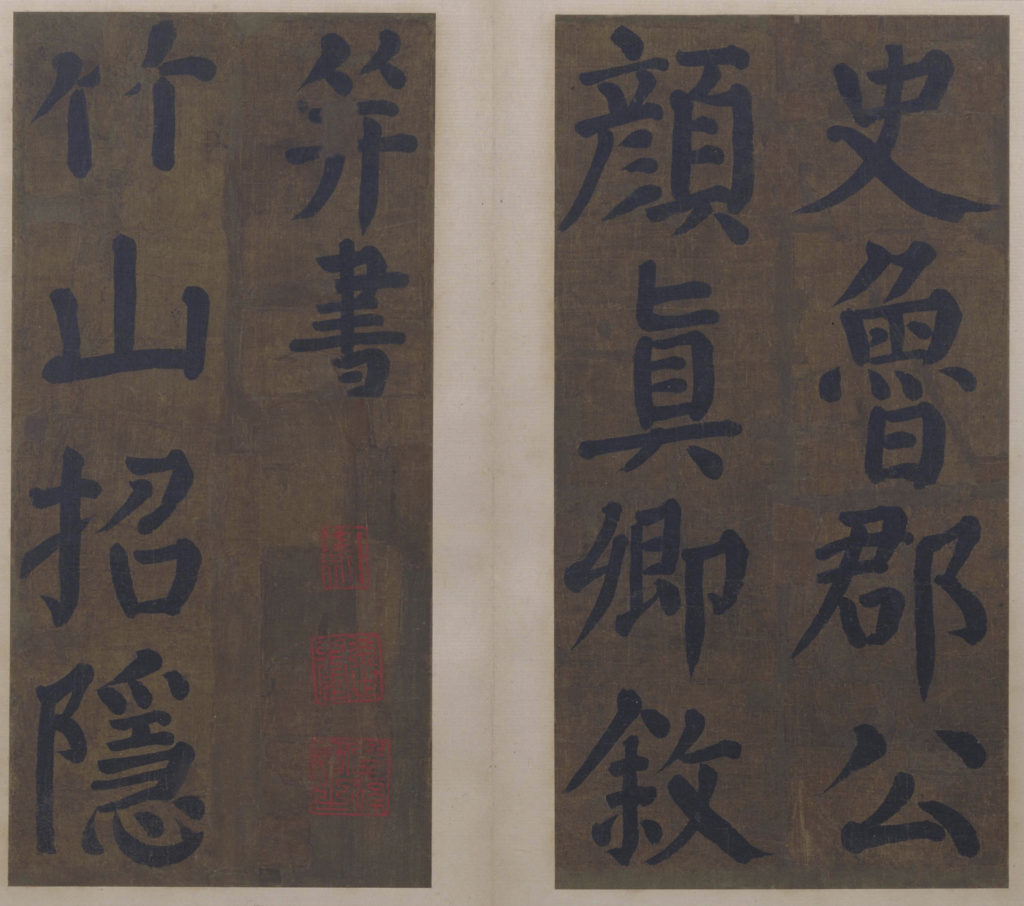 史魯郡公
顏眞卿敘
筭書
竹山招隱